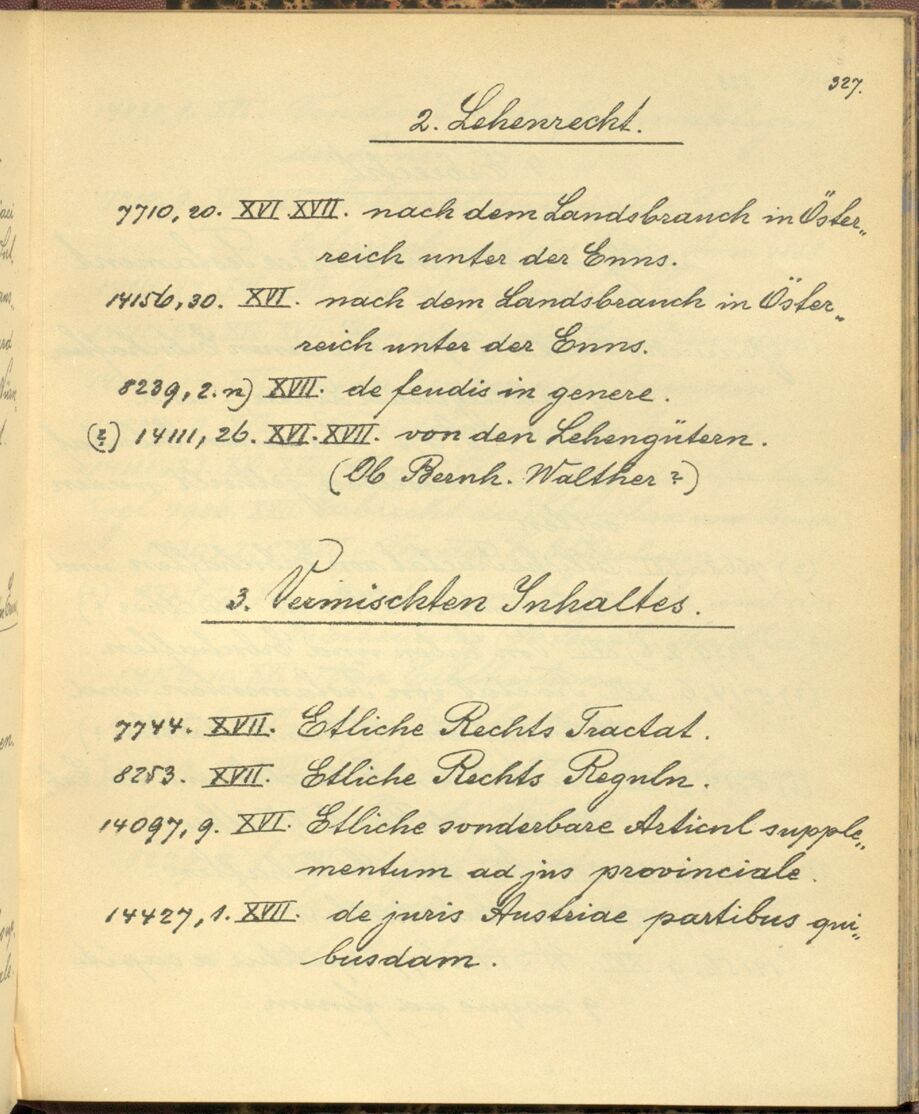 327.
2. Lehenrecht.
7710, 20. XVI. XVII. nach dem Landsbrauch in Öster„
reich unter der Enns.
14156, 30. XVI. nach dem Landsbrauch in Öster„
reich unter der Enns.
8239, 2. n) XVII. de feudis in genere.
(?) 14111, 26. XVI. XVII. von den Lehengütern.
(Ob Bernh. Walther?)
3. Vermischten Inhaltes.
7744. XVII. Etliche Rechts Tractat.
8253. XVII. Etliche Rechts Reguln.
14097, 9. XVI. Etliche sonderbare Articul supple„
mentum ad jus provinciale.
14427, 1. XVII. de juris Austriae partibus qui„
busdam.